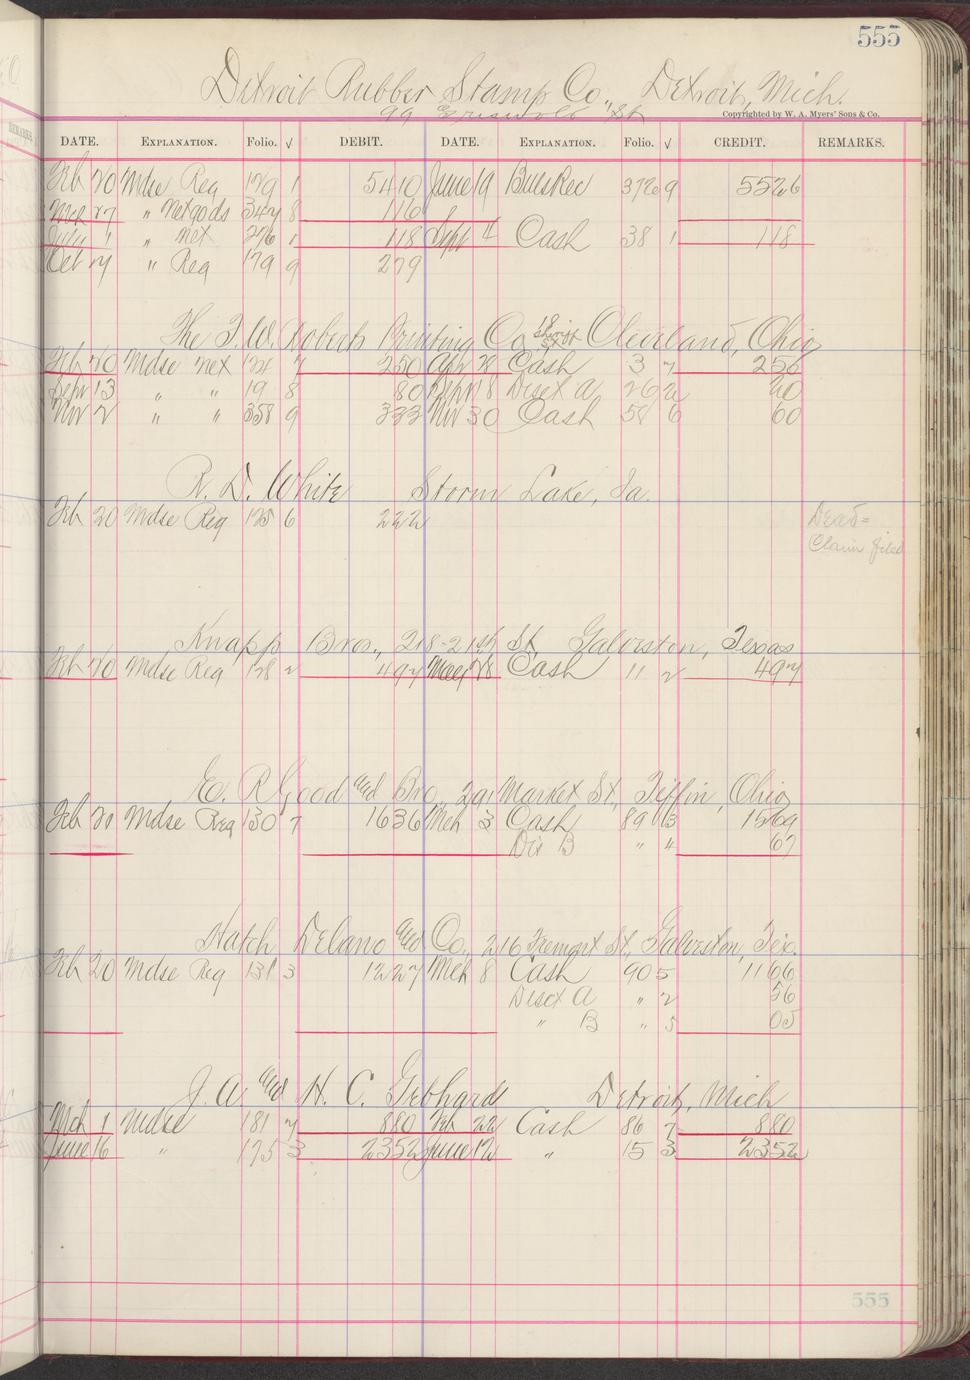 555
Detroit Rubber Stamp Co., Detroit, Mich.
99 Griswold St
Copyrighted by W. A. Myers' Sons & Co.
DATE. EXPLANATION. Folio. √ DEBIT. DATE. EXPLANATION. Folio. √ CREDIT. REMARKS.
Feb 20 Mdse Reg 179 1 5410 June 19 Bills Rec 372 9 5526
Mch 27 " net gods 347 8 116
July 1 " net 276 1 118 Sept 4 Cash 38 1 118
Oct 27 " Reg 179 9 279
The J. W. Roberts Printing Co Cleveland, Ohio
Feb 20 Mdse net 124 7 250 Apr 28 Cash 3 7 250
Sept 13 " " 19 8 80 Sept 18 Disct A 26 2 20
Nov 2 " " 358 9 333 Nov 30 Cash 58 6 60
R. D. White Storm Lake, Ia.
Feb 20 Mdse Reg 125 6 222 Dead=
Claim filed
Knapp Bros., 218-21st St, Galveston, Texas
Feb 20 Mdse Reg 128 2 497 28 Cash 11 2 497
E. R Good and Bro, 291 Market St., Tiffin, Ohio
Feb 20 Mdse Reg 130 7 1636 Mch 3 Cash 89 13 1569
Dis B " 4 67
Hatch Delano and Co., 216 Tremont St., Galveston, Tex.
Feb 20 Mdse Reg 131 3 1227 Mch 8 Cash 90 5 1166
Disct A " 2 56
" B " 5 05
J. A and H. C. Gebhard Detroit, Mich
Mch 1 Mdse 181 7 880 Feb 22 Cash 86 7 880
June 16 " 175 3 2352 June 12 " 15 3 2352
555